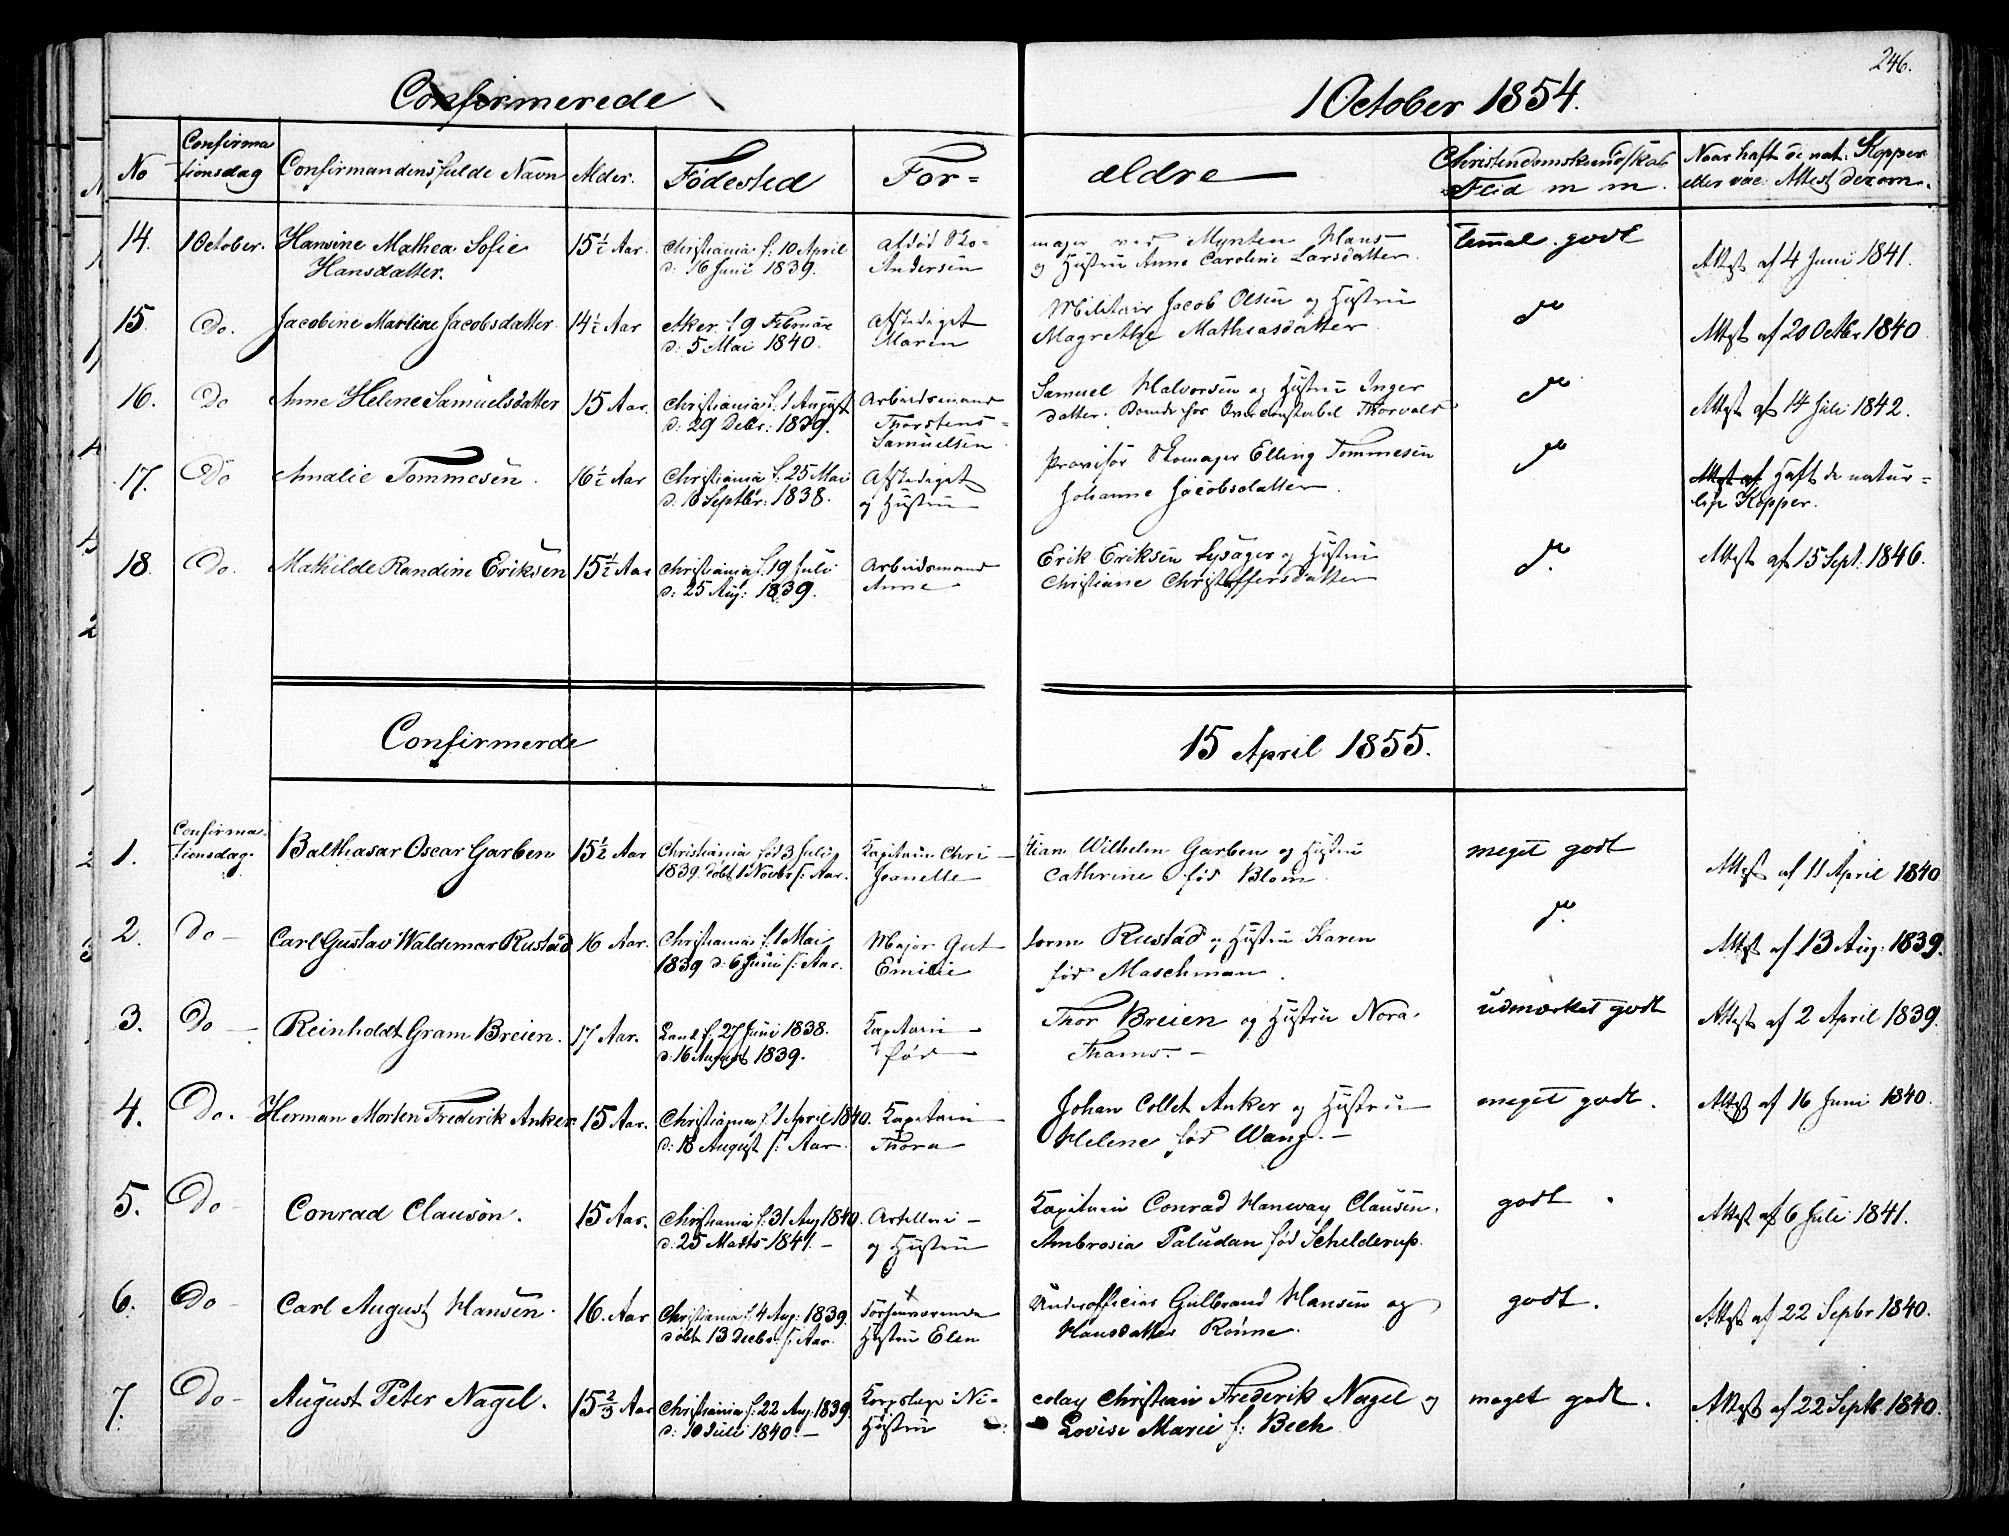 246.
Confirmerede 1 October 1854.
No Confirma
tionsdag Confirmandens fulde Navn Alder. Fødested For= ældre Christendomskundskab
Flid m m. Naar haft de nat: Kopper
eller vac: Attest derom.
14. 1 October. Hansine Mathea Sofie 15½ Aar. Christiania f: 10 April afdød Sko= mager ved Mynten Hans temmel. godt
Hansdatter. d: 16 Juni 1839. Andersen og Hustru Anne Caroline Larsdatter. Attest af 4 Juni 1841.
15. Do. Jacobine Martine Jacobsdatter 14½ Aar Aker f 9 Februar Afskediget Militair Jacob Olsen og Hustru do
d: 5 Mai 1840. Maren Magrethe Mathiasdatter. Attest af 20 Octbr 1840
16. Do Anne Helene Samuelsdatter 15 Aar. Christiania f. 1 August Arbeidsmand Samuel Halvorsen og Hustru Inger do
d: 29 Decbr: 1839. Thorstens= datter. Overconstabel Thorvald Attest af 14 Juli 1842.
Samuelsen
17. Do Amalie Tommesen. 16½ Aar Christiania f. 25 Mai Afskediget Provisor Skomager Elling Tommesen do
d: 16 Septbr: 1838. og Hustru Johanne Jacobsdatter. Attest af Haft de natur=
lige Kopper.
18. Do. Mathilde Randine Eriksen 15½ Aar Christiania f. 19 Juli Arbeidsmand Erik Eriksen Lysager og Hustru do. Attest af 15 Sept: 1846.
d: 25 Aug: 1839. Anne Christiane Christoffersdatter
Confirmerde 15 April 1855.
1. Confirma-
tionsdag. Balthasar Oscar Garben 15½ Aar Christiania fød 3 Juli Kapitain Chri- tian Wilhelm Garben og Hustru meget godt
1839. døbt 1 Novbr s: Aar. Jeanette Cathrine fød Blom. Attest af 11 April 1840
2. Do - Carl Gustav Waldemar Rustad 16 Aar. Christiania f. 1 Mai Major Gut- torm Rustad og Hustru Karen do.
1839 d: 6 Juni s: Aar. Emilie fød Maschman. Attest af 13 Aug: 1839.
3. Do - Reinholdt Gram Breien. 17 Aar. Land f. 27 Juni 1838. Kapitain Thor Breien og Hustru Nora udmærket godt
d: 16 August 1839. fød Thams. - Attest af 2 April 1839.
4. Do. Herman Morten Frederik Anker 15 Aar. Christiania f. 1 April 1840. Kapitain Johan Collet Anker og Hustru meget godt. Attest af 16 Juni 1840.
d: 18 August s: Aar Thora Helene fød Wang. -
5. Do - Conrad Clauson. 15 Aar. Christiania f: 31 Aug 1840. Artilleri- Kapitain Conrad Hanway Clausen. godt. Attest af 6 Juli 1841.
d: 25 Marts 1841. - og Hustru Ambrosia Paludan fød Schelderup.
6. Do - Carl August Hansen. 16. Aar Christiania f. 4 Aug: 1839. Forhenværende Underofficier Gulbrand Hansen og godt. Attest af 22 Sepbr 1840.
døbt 13 Decbr s: Aar. Hustru Elen Hansdatter Rønne.
7. Do - August Peter Nagel. 15⅔ Aar Christiania f: 22 Aug: 1839. Korpslæge Ni= colay Christian Frederik Nagel og meget godt. Attest af 22 Septb. 1840.
d: 10 Juli 1840. - Hustru Lovise Marie f: Bech